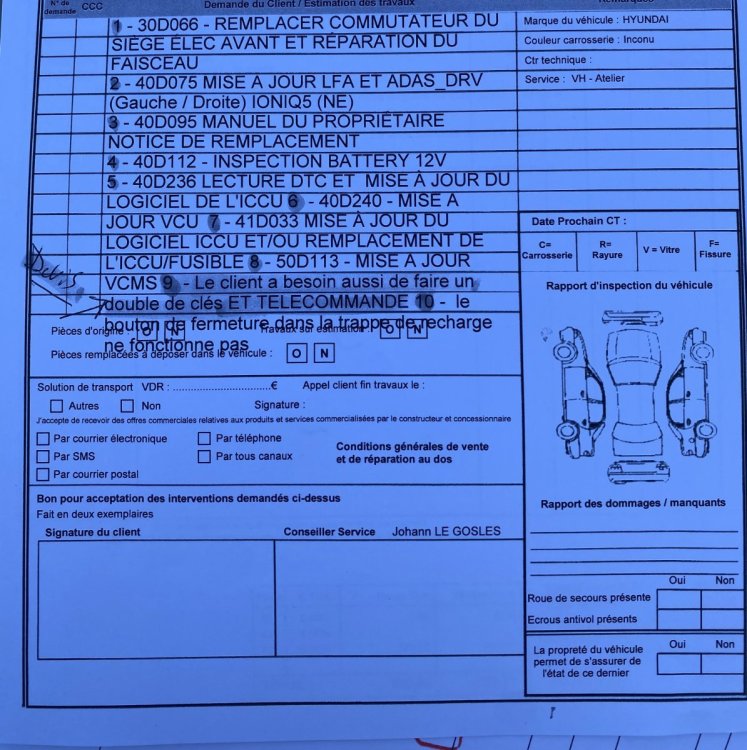 N° de
demande CCC Demande du Client / Estimation des travaux Remarques
1 - 30D066 - REMPLACER COMMUTATEUR DU
SIÈGE ÉLEC AVANT ET RÉPARATION DU
FAISCEAU
2 - 40D075 MISE A JOUR LFA ET ADAS_DRV
(Gauche / Droite) IONIQ5 (NE)
3 - 40D095 MANUEL DU PROPRIÉTAIRE
NOTICE DE REMPLACEMENT
4 - 40D112 - INSPECTION BATTERY 12V
5 - 40D236 LECTURE DTC ET MISE À JOUR DU
LOGICIEL DE L'ICCU 6 - 40D240 - MISE A
JOUR VCU 7 - 41D033 MISE À JOUR DU
LOGICIEL ICCU ET/OU REMPLACEMENT DE
L'ICCU/FUSIBLE 8 - 50D113 - MISE A JOUR
VCMS 9 - Le client a besoin aussi de faire un
double de clés ET TELECOMMANDE 10 - le
bouton de fermeture dans la trappe de recharge
ne fonctionne pas
Devis
Marque du véhicule : HYUNDAI
Couleur carrosserie : Inconu
Ctr technique :
Service : VH - Atelier
Date Prochain CT :
C= Carrosserie
R= Rayure
V = Vitre
F= Fissure
Rapport d'inspection du véhicule
Pièces d'origine : O N Travaux sur estimation : O N
Pièces remplacées à déposer dans le véhicule : O N
Solution de transport VDR : ..............................€ Appel client fin travaux le :
Autres Non Signature :
J'accepte de recevoir des offres commerciales relatives aux produits et services commercialisées par le constructeur et concessionnaire
Par courrier électronique Par téléphone
Par SMS Par tous canaux
Par courrier postal
Conditions générales de vente
et de réparation au dos
Bon pour acceptation des interventions demandés ci-dessus
Fait en deux exemplaires
Signature du client Conseiller Service Johann LE GOSLES
Rapport des dommages / manquants
Oui Non
Roue de secours présente
Ecrous antivol présents
Oui Non
La propreté du véhicule
permet de s'assurer de
l'état de ce dernier